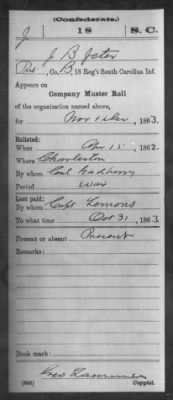 (Confederate.)
J 18 S.C.
J B Jeter
Pvt, Co. B, 18 Reg't South Carolina Inf.
Appears on
Company Muster Roll
of the organization named above,
for Nov & Dec, 1863.
Enlisted:
When Apr 15, 1862.
Where Charleston
By whom Col Gadberry
Period War
Last paid:
By whom Capt Lemons
To what time Oct 31, 1863.
Present or absent Present
Remarks:
Book mark:
(642) Copyist.